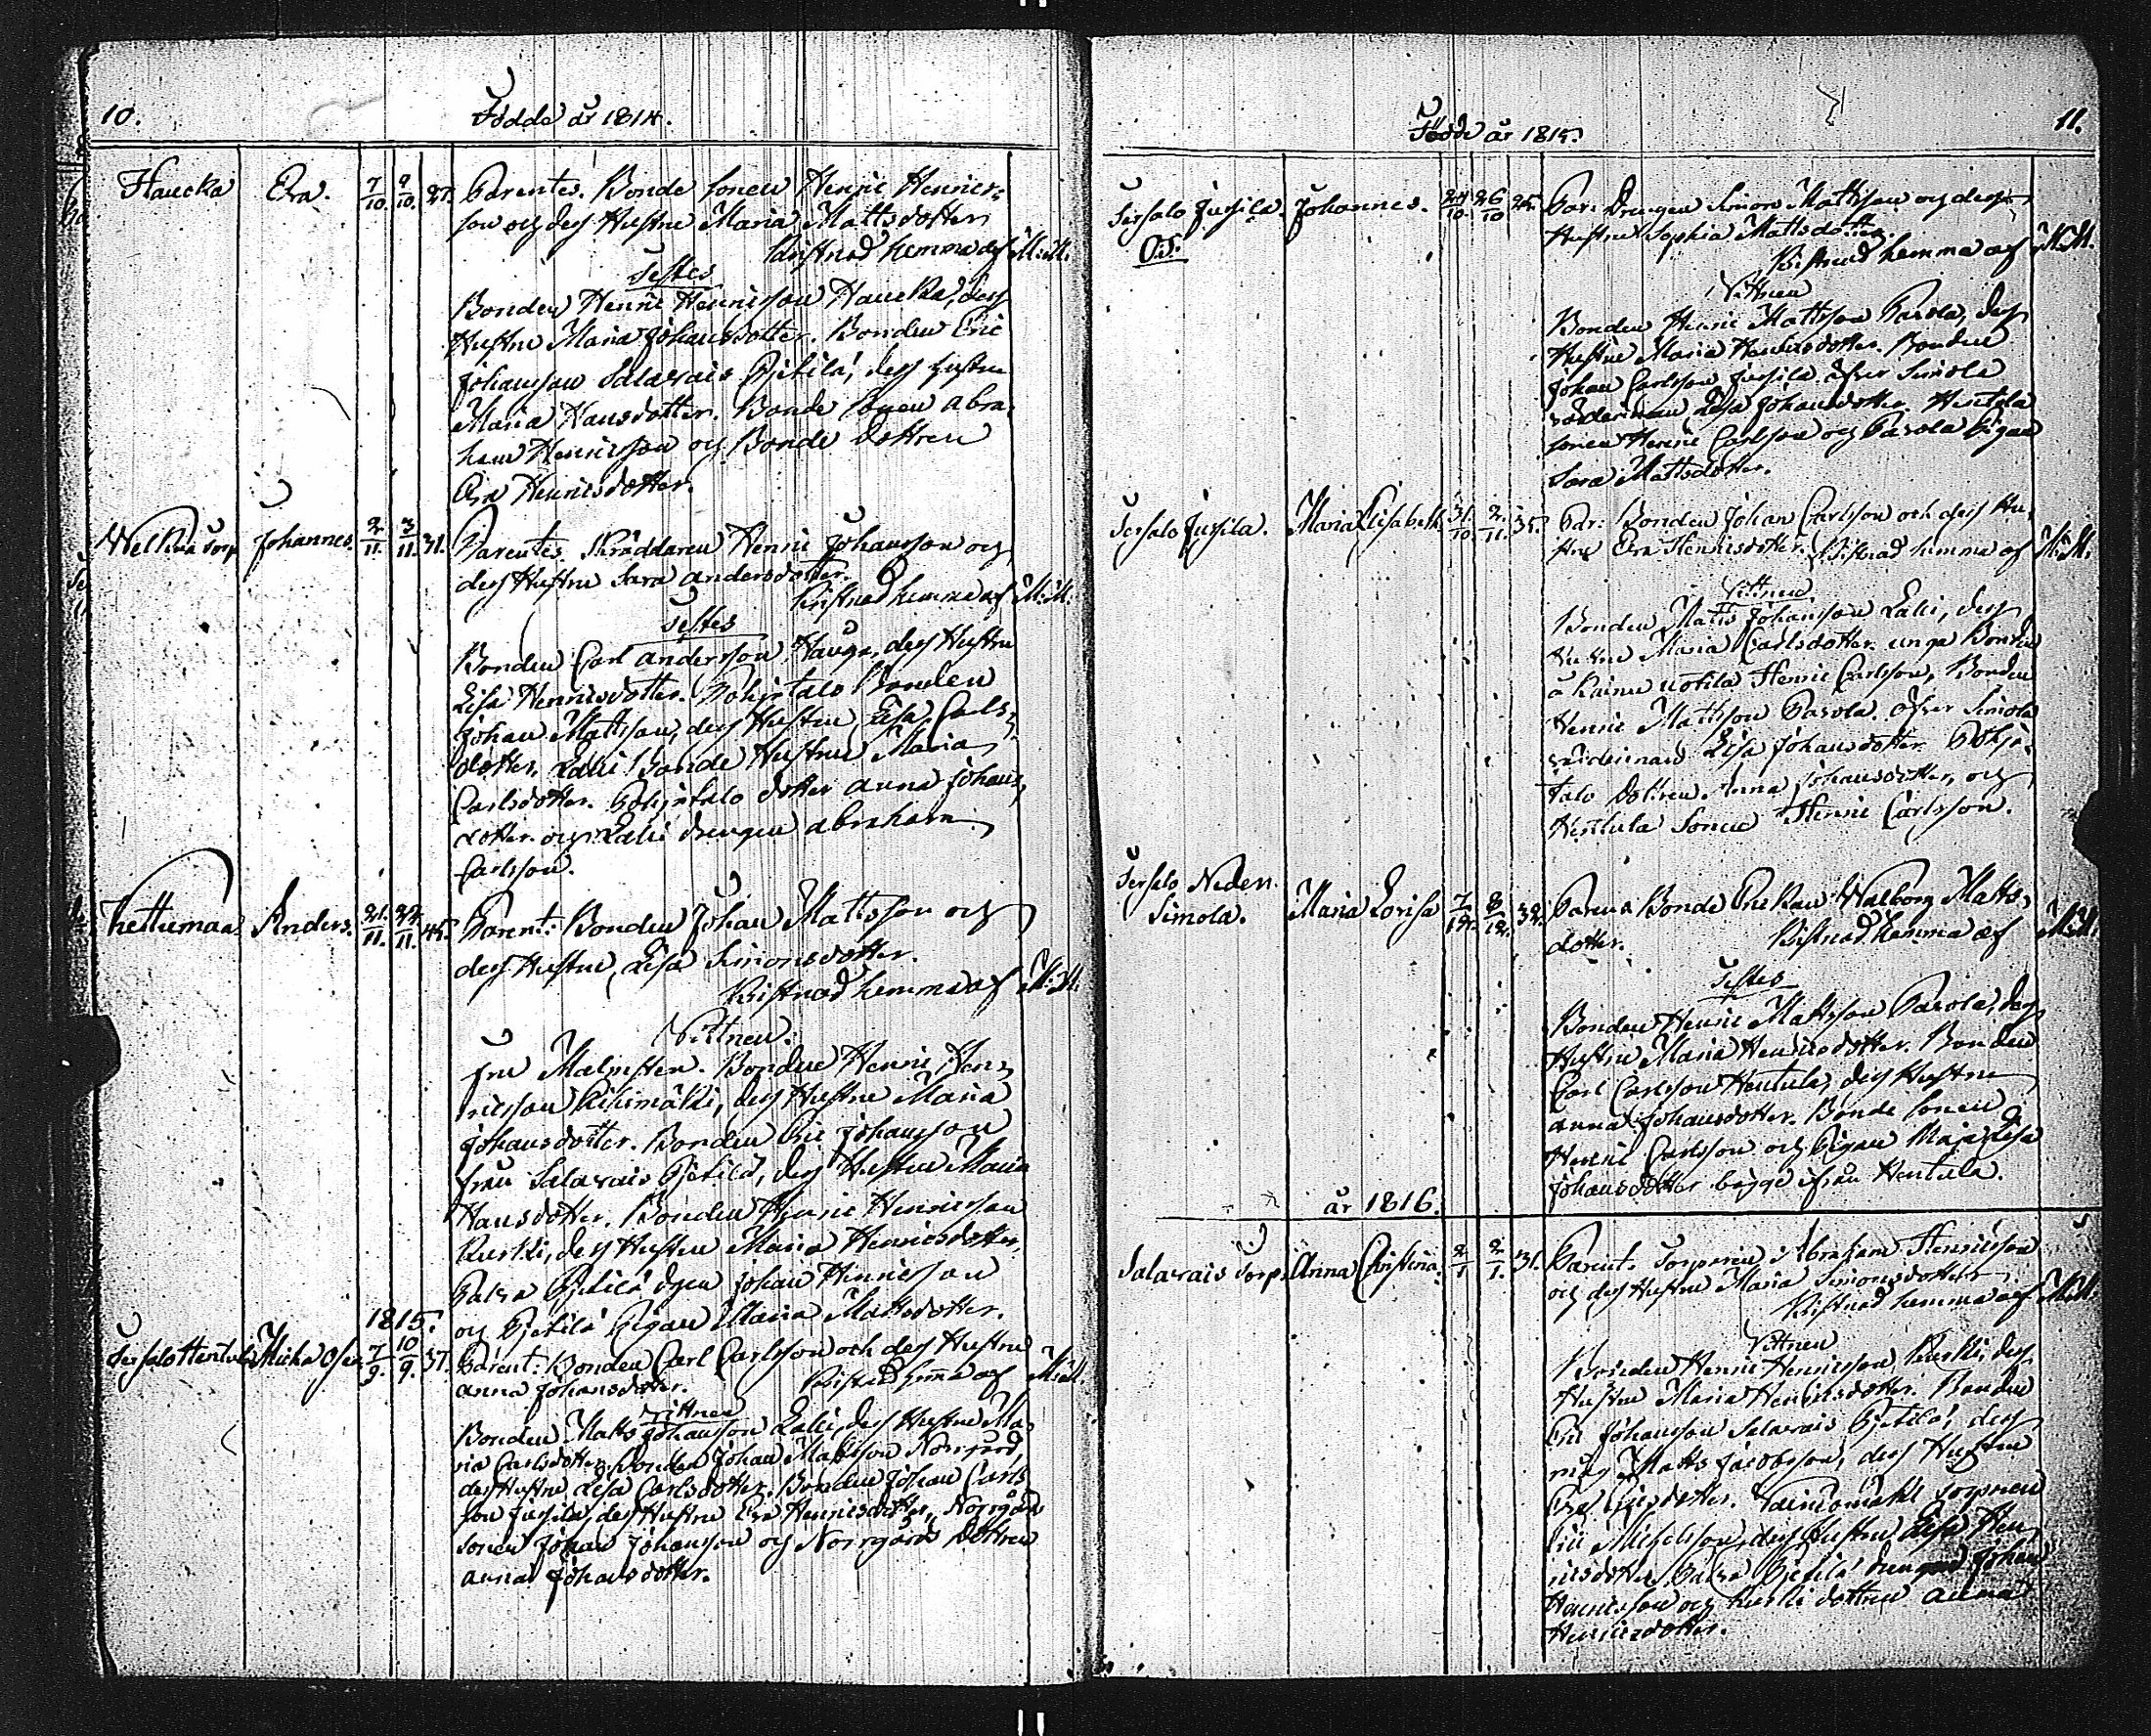 10.
Födde år 1814.
Haucka Eva. 7/10. 9/10. 27. Parentes. Bonde sonen Henric Henrics-
son och dess Hustru Maria Mattsdotter
Kristnad hemma af M:M.
Testes
Bonden Henric Henricsson Haucka, dess
Hustru Maria Johansdotter. Bonden Eric
Johansson Salavais Pjetilä, dess hustru
Maria Hansdotter. Bonde sonen Abra-
ham Henricsson och Bonde dottren
Eva Henricsdotter.
Torp Johannes. 2/11. 3/11. 31. Parentes. Skräddaren Henric Johansson och
dess Hustru Sara Andersdotter.
Kristnad hemma af M:M.
Testes
Bonden Carl Andersson Hauga, dess Hustru
Lisa Henricsdotter. Pohjatalo Bonden
Johan Mattsson, dess Hustru Lisa Carls-
dotter. Lalli Bonde Hustrun Maria
Carlsdotter. Pohjatalo dotter Anna Johans-
dotter och Lalli drengen Abraham
Carlsson.
Kettumaa Anders. 21/11. 22/11. 45. Parent: Bonden Johan Mattsson och
dess Hustru Lisa Simonsdotter.
Kristnad hemma af M:M.
Vittnen:
fru Malmsten. Bonden Henric Hen-
ricsson Rihimäki, dess Hustru Maria
Johansdotter. Bonden Eric Johansson
från Salavais Pjetilä, dess Hustru Maria
Hansdotter. Bonden Henric Henricsson
Kurcki, dess Hustru Maria Henricsdotter,
Pjetilä Johan Henricsson
och Pjetilä Pigan Maria Mattsdotter.
1815.
Sersalo Hentula Micha 7/9. 10/9. 37. Parent: Bonden Carl Carlsson och dess Hustru
Anna Johansdotter. Kristnad hemma af M:M.
Vittnen
Bonden Matts Johansson Lalli, dess Hustru Ma-
ria Carlsdotter. Bonden Johan Mattsson Norrgård,
dess Hustru Lisa Carlsdotter. Bonden Johan Carls-
son Jussila, dess Hustru Eva Henricsdotter, Norrgårds
sonen Johan Johansson och Norrgårds dottren
Anna Johansdotter.
11.
Födde år 1815.
Sersalo Jussila. Johannes. 24/10. 26/10 25. Par: Drengen Simon Mattsson och dess
Hustru Sophia Mattsdotter.
Kristnad hemma af M:M.
Vittnen
Bonden Henric Mattsson Pavola, dess
Hustru Maria Henricsdotter. Bonden
Johan Carlsson Jussila. öfver Simola
värdinnan Lisa Johansdotter. Hentula
sonen Henric Carlsson och Pavola Pigan
Sara Mattsdotter.
Sersalo Jussila. Maria Elisabeth. 31/10. 2/11. 35. Par: Bonden Johan Carlsson och dess Hu-
stru Eva Henricsdotter. Kristnad hemma af M:M.
Vittnen
Bonden Matts Johansson Lalli, dess
Hustru Maria Carlsdotter. unga Bonden
å Rainu Uotila Henric Carlsson, Bonden
Henric Mattsson Pavola. öfver Simola
värdinnan Lisa Johansdotter. Pohja-
talo Dottren Anna Johansdotter, och
Hentula Sonen Henric Carlsson.
Sersalo Neder.
Simola. Maria Lovisa 7/12. 8/12. 32. Parens Bonde Enckan Walborg Matts-
dotter. Kristnad hemma af M:M.
Testes
Bonden Henric Mattsson Pavola, dess
Hustru Maria Henricsdotter. Bonden
Carl Carlsson Hentula, dess Hustru
Anna Johansdotter. Bonde sonen
Henric Carlsson och Pigan Maja Lisa
Johansdotter bägge ifrån Hentula.
år 1816.
Salavais Torp. Anna Christina. 2/1 2/1. 31. Parent. Torparen Abraham Henricsson
och dess Hustru Maria Simonsdotter.
Kristnad hemma af M:M.
Vittnen
Bonden Henric Henricsson Kurcki, dess
Hustru Maria Henricsdotter. Bonden
Eric Johansson Salavais Pjetilä, dess
måg Matts Jacobsson, dess Hustru
Eva Ericsdotter. Torparen
Eric Michelsson, dess Hustru Lisa Hen-
ricsdotter, Pjetilä drengen Johan
Henricsson och Kurcki dottren Anna
Henricsdotter.